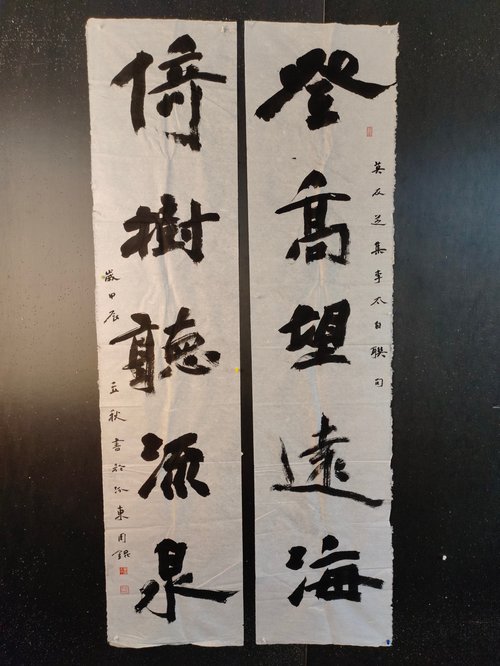 登高望遠海
莫友芝集李太白聯句
倚樹聽流泉
歲甲辰立秋書於東周錕